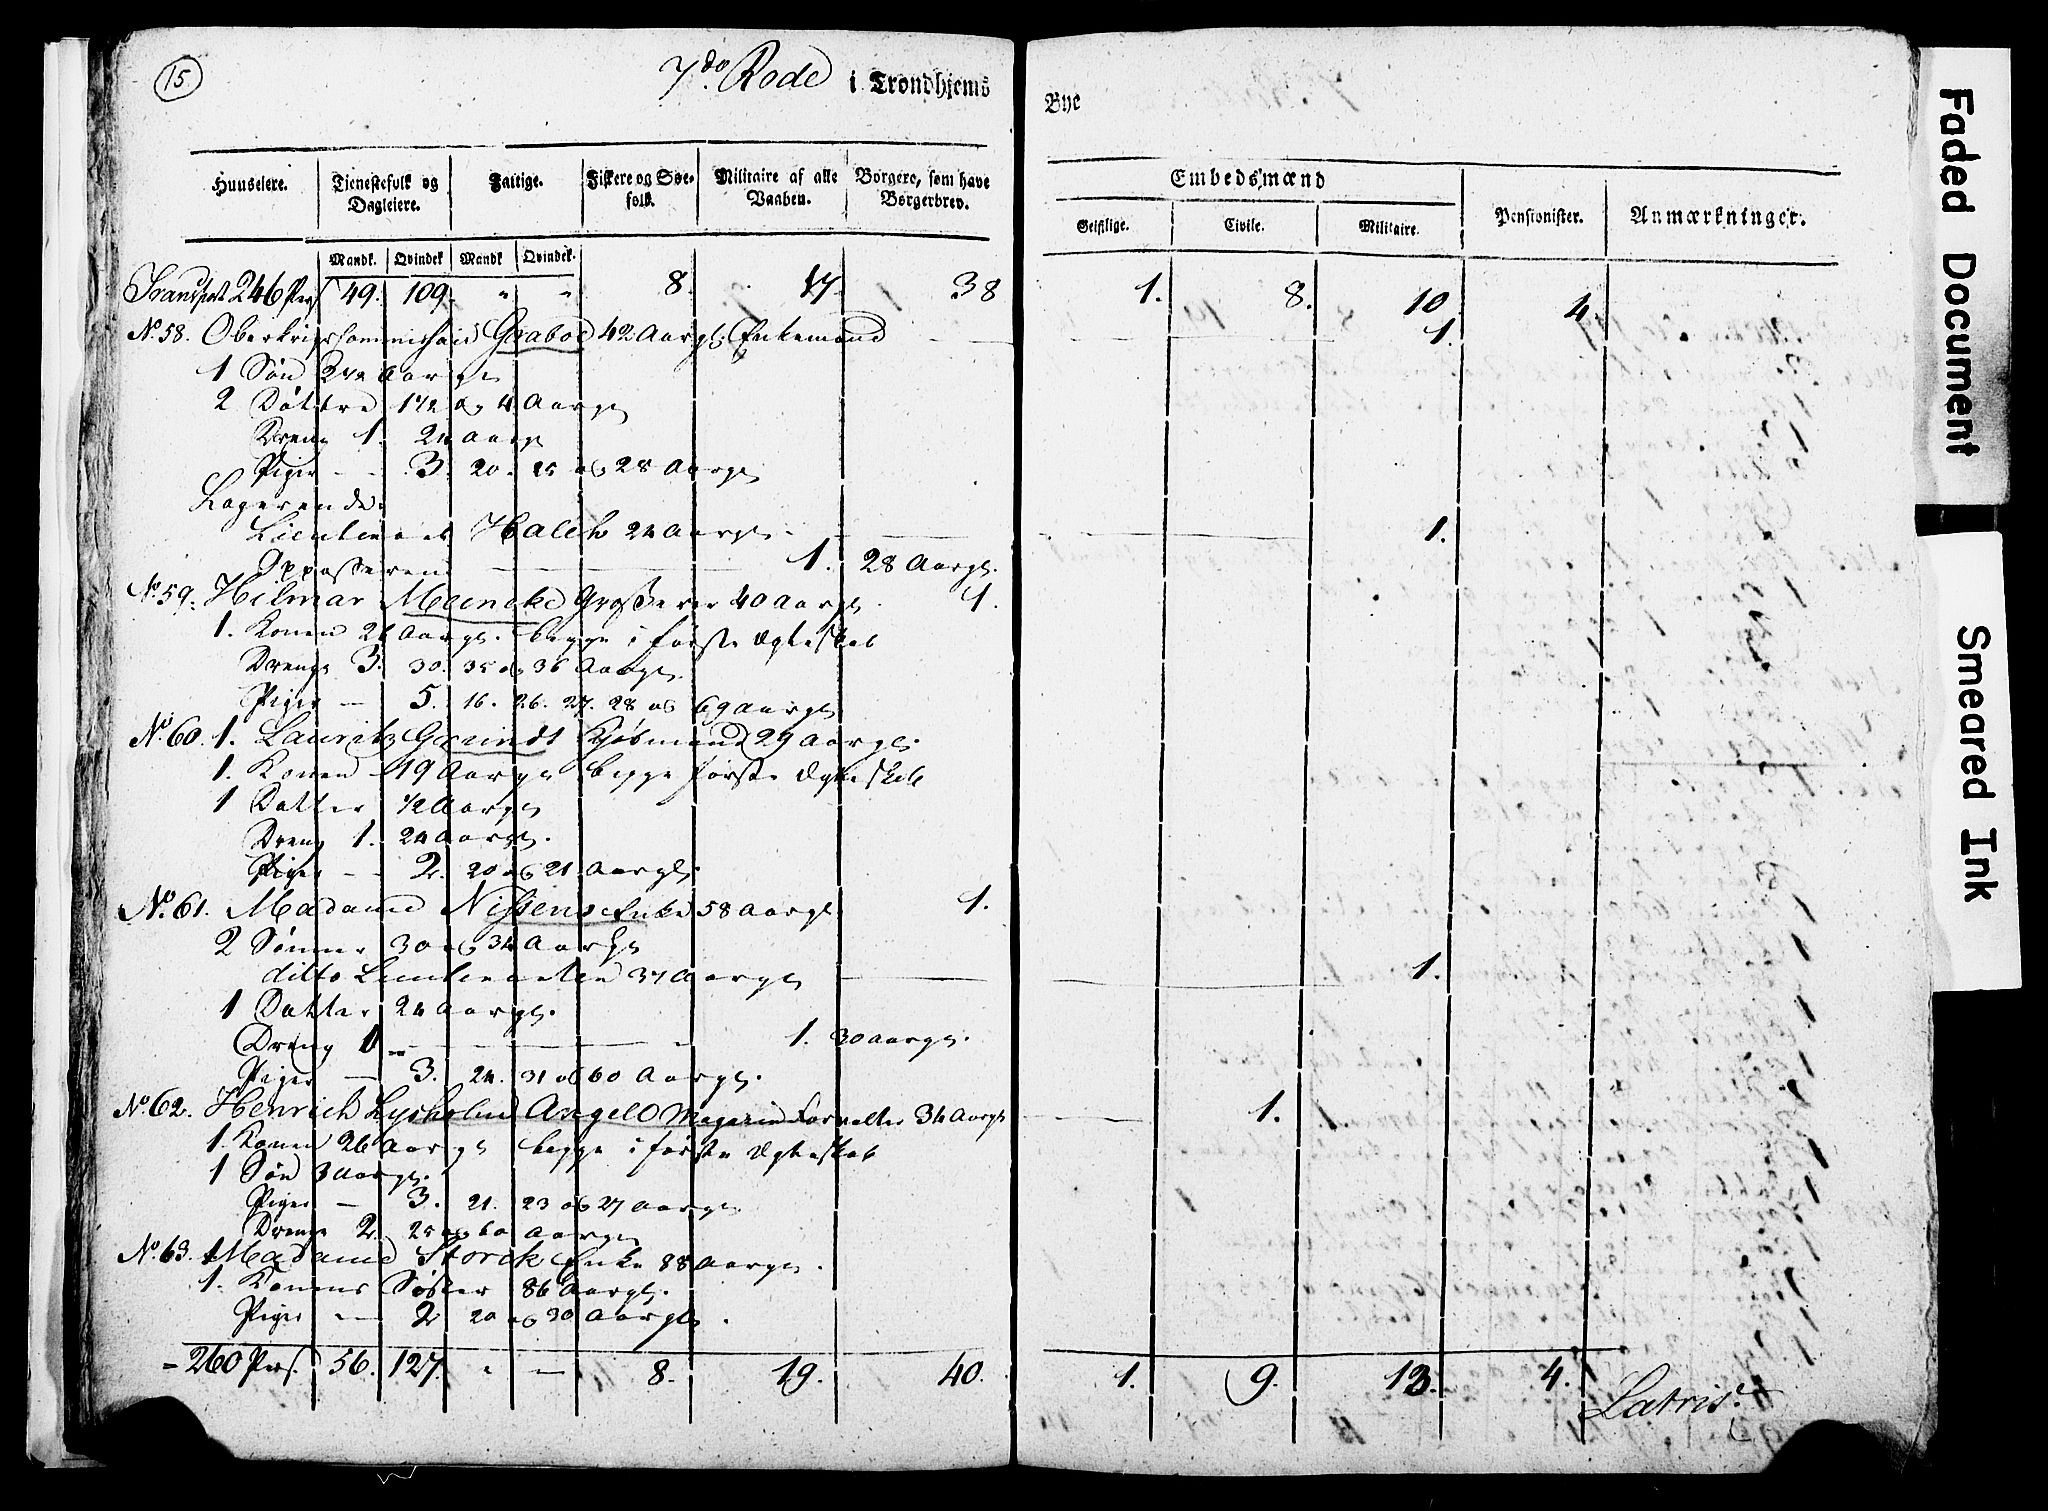 15.
7do Rode i Trondhjems Bye
Huuseiere. Tienestefolk og Dagleiere. Fattige. Fiskere og Søefolk. Militaire af alle Vaaben. Borgere, som have Borgerbrev. Embedsmænd Pensionister. Anmærkninger.
Geistlige. Civile. Militaire.
Mandk. Qvindek Mandk Qvindek.
Transport 246 Pers 49. 109. " " 8. 17. 38 1. 8. 10. 4.
No. 58. Oberkrigscommissair Graboe 42 Aargl. Enkemand 1.
1 Søn Aargl
2 Døttre 1 1/2 og 4 Aargl
Dreng 1. 24 Aargl
Piger - - 3. 20. 25 og 28 Aargl
Logerende.
Lieutenant Halck 24 Aargl - 1.
Oppasseren 1. 28 Aargl.
No. 59. Hilmar Meincke Grosserer 40 Aargl 1.
1. Konen Aargl. begge i første Ægteskab
Drenge 3. 30. 35 og 36 Aargl.
Piger - 5. 16. 26. 27. 28 og 69 Aargl
No. 60. 1. Lauritz Kjøbmand 29 Aargl.
1. Konen 19 Aargl begge første Ægteskab
1 Datter 1/2 Aargl
Dreng 1. 24 Aargl.
Piger - - 2. 20 og 21 Aargl.
No. 61. Madame Nissens Enke 58 Aargl 1.
2 Sønner 30 og 34 Aargl
ditto Lieutenanten 37 Aargl 1.
1 Datter 24 Aargl.
Dreng 1. 30 Aargl.
Piger - 3. 24. 31 og 60 Aargl.
No. 62. Henrich Lysholm Angell Magazin Forvalter 34 Aargl 1.
1. Konen 26 Aargl begge i første Ægteskab
1 Søn 3 Aargl.
Piger - 3. 21. 23 og 27 Aargl
Drenge 2. 25 og 60 Aargl
No. 63. 1 Madame Storck Enke 88 Aargl.
1. Konens Søster 86 Aargl.
Piger - 2 20 og 30 Aargl.
= 260 Pers. 56. 127. " - 8. 19. 40. 1. 9. 13. 4.
Latris.
Faded Document
Smeared Ink